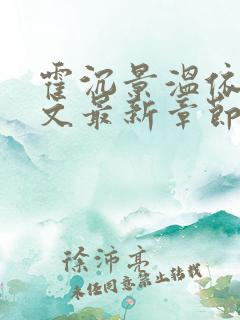 霍沉景温依
文最新章节
徐沛亮
未经同意禁止转载